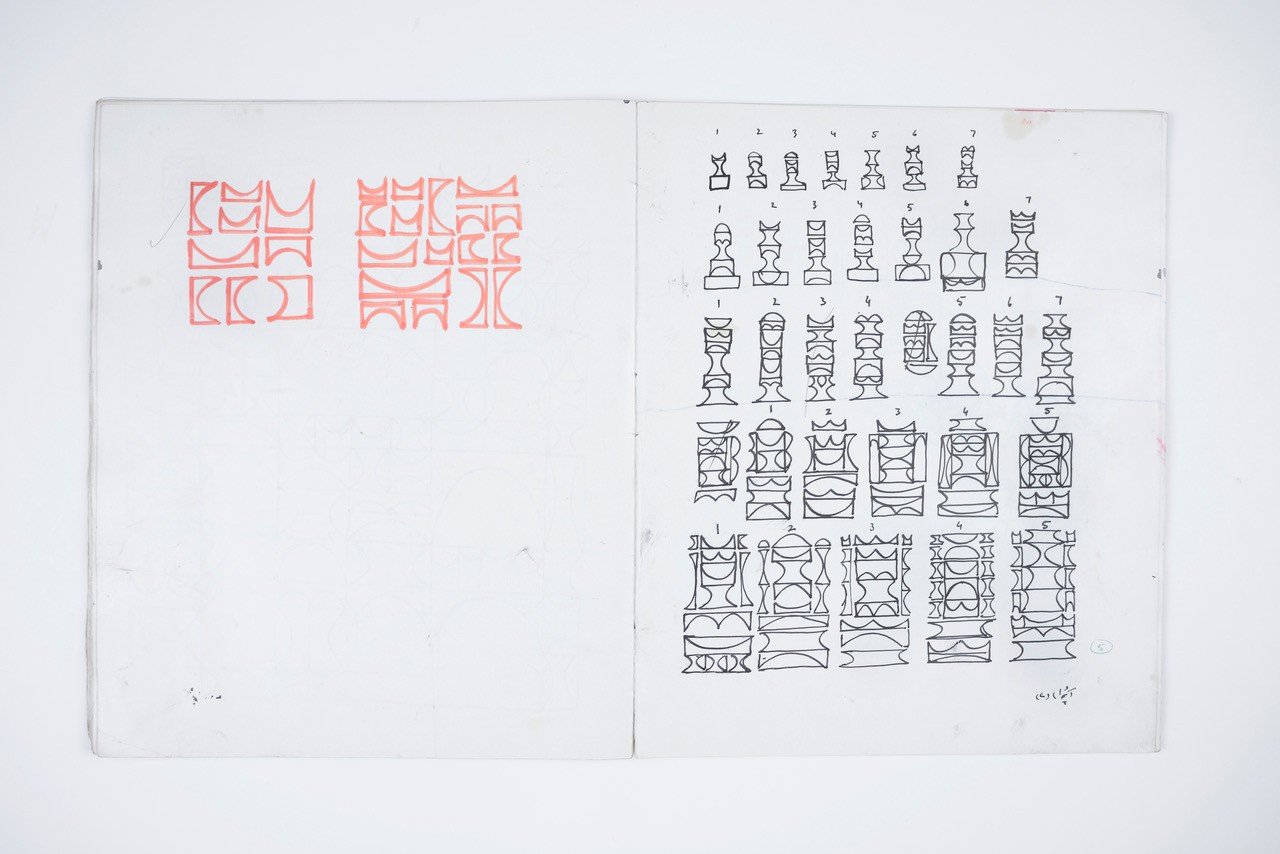 1 2 3 4 5 6 7
1 2 3 4 5 6 7
1 2 3 4 5 6 7
1 2 3 4 5
1 2 3 4 5
5